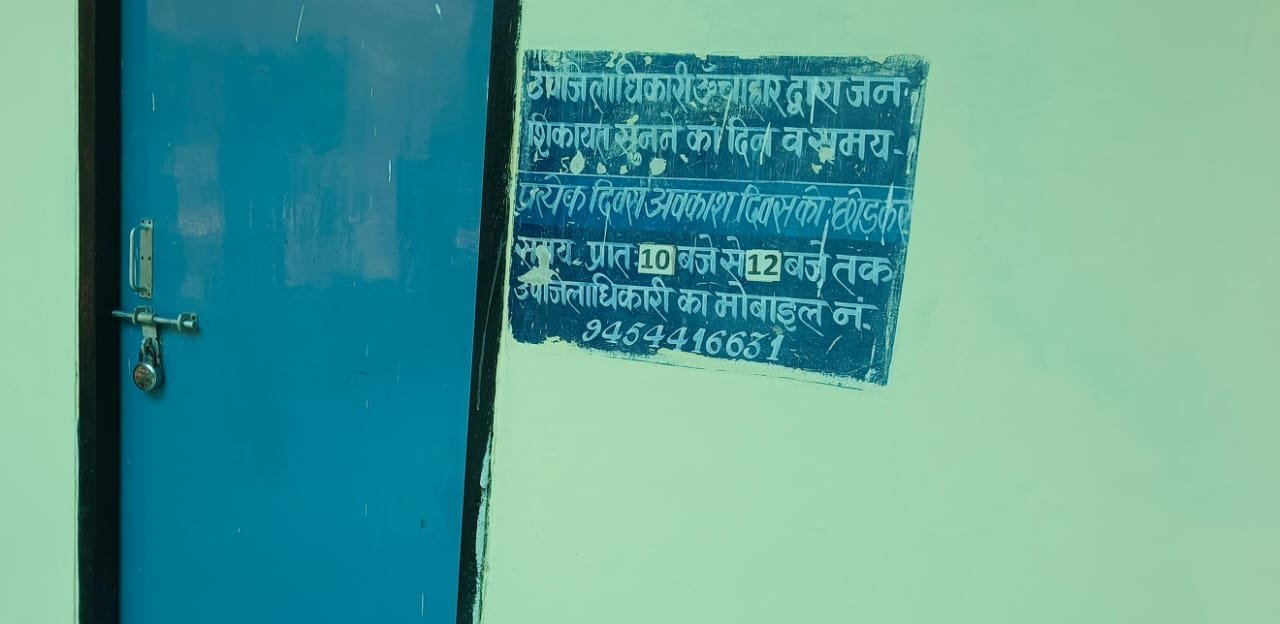 उपजिलाधिकारी ऊँचाहार द्वारा जन-
शिकायत सुनने का दिन व समय-
प्रत्येक दिवस अवकाश दिवस को छोडकर
समय- प्रातः 10 बजे से 12 बजे तक
उपजिलाधिकारी का मोबाइल नं.-
9454416631